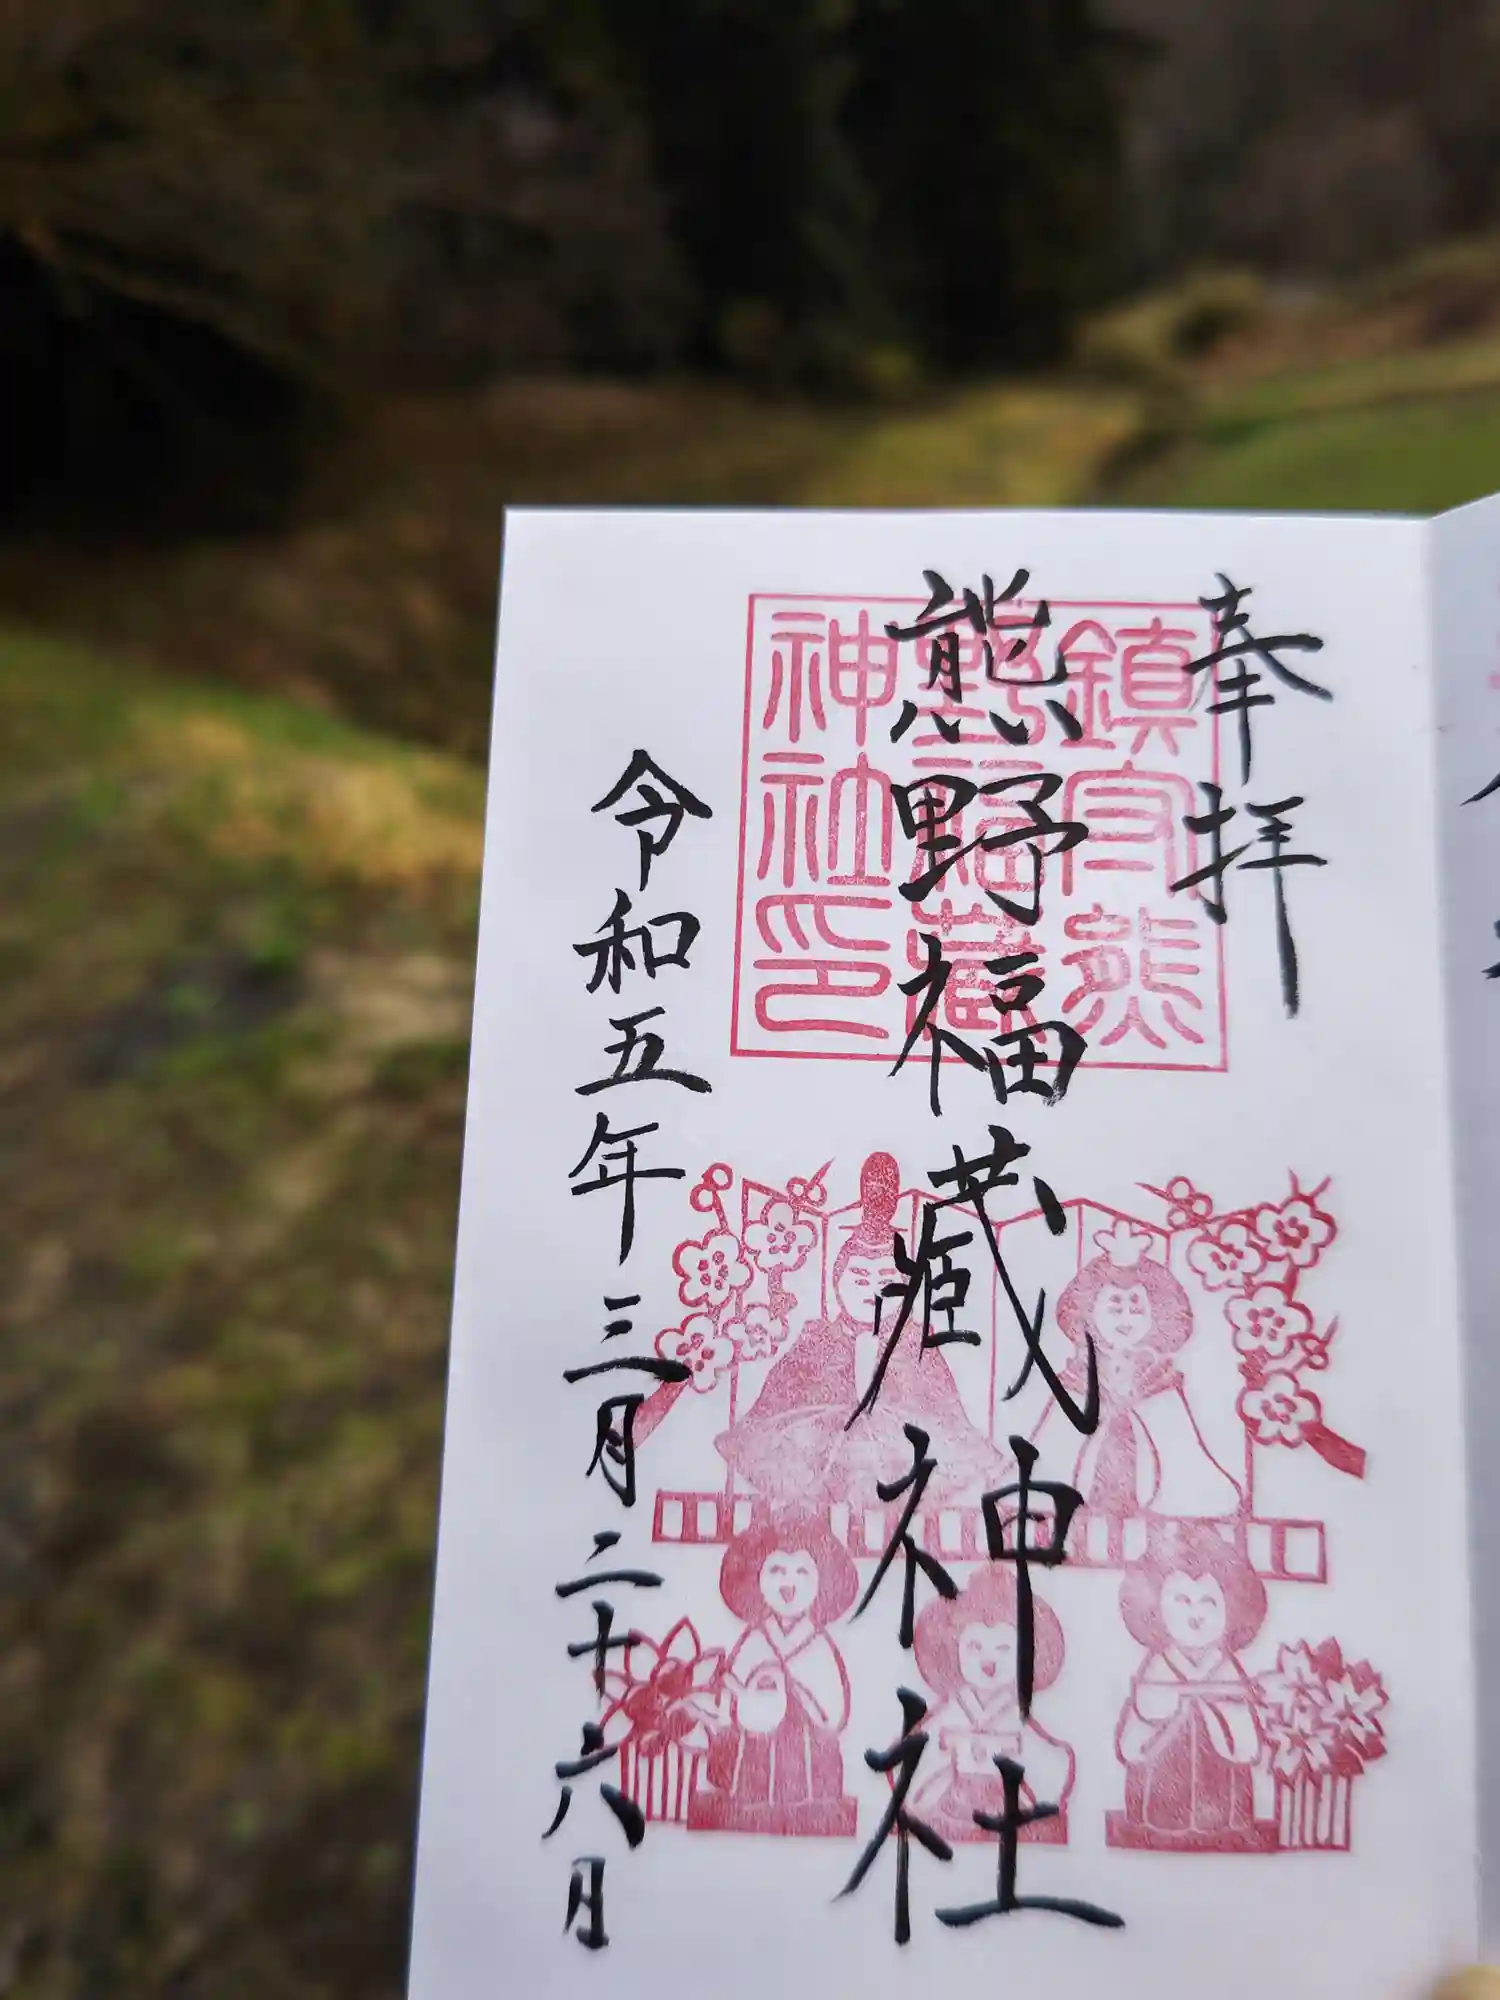 奉拝
熊野福藏神社
令和五年三月二十六日
鎮守熊
野福藏
神社印